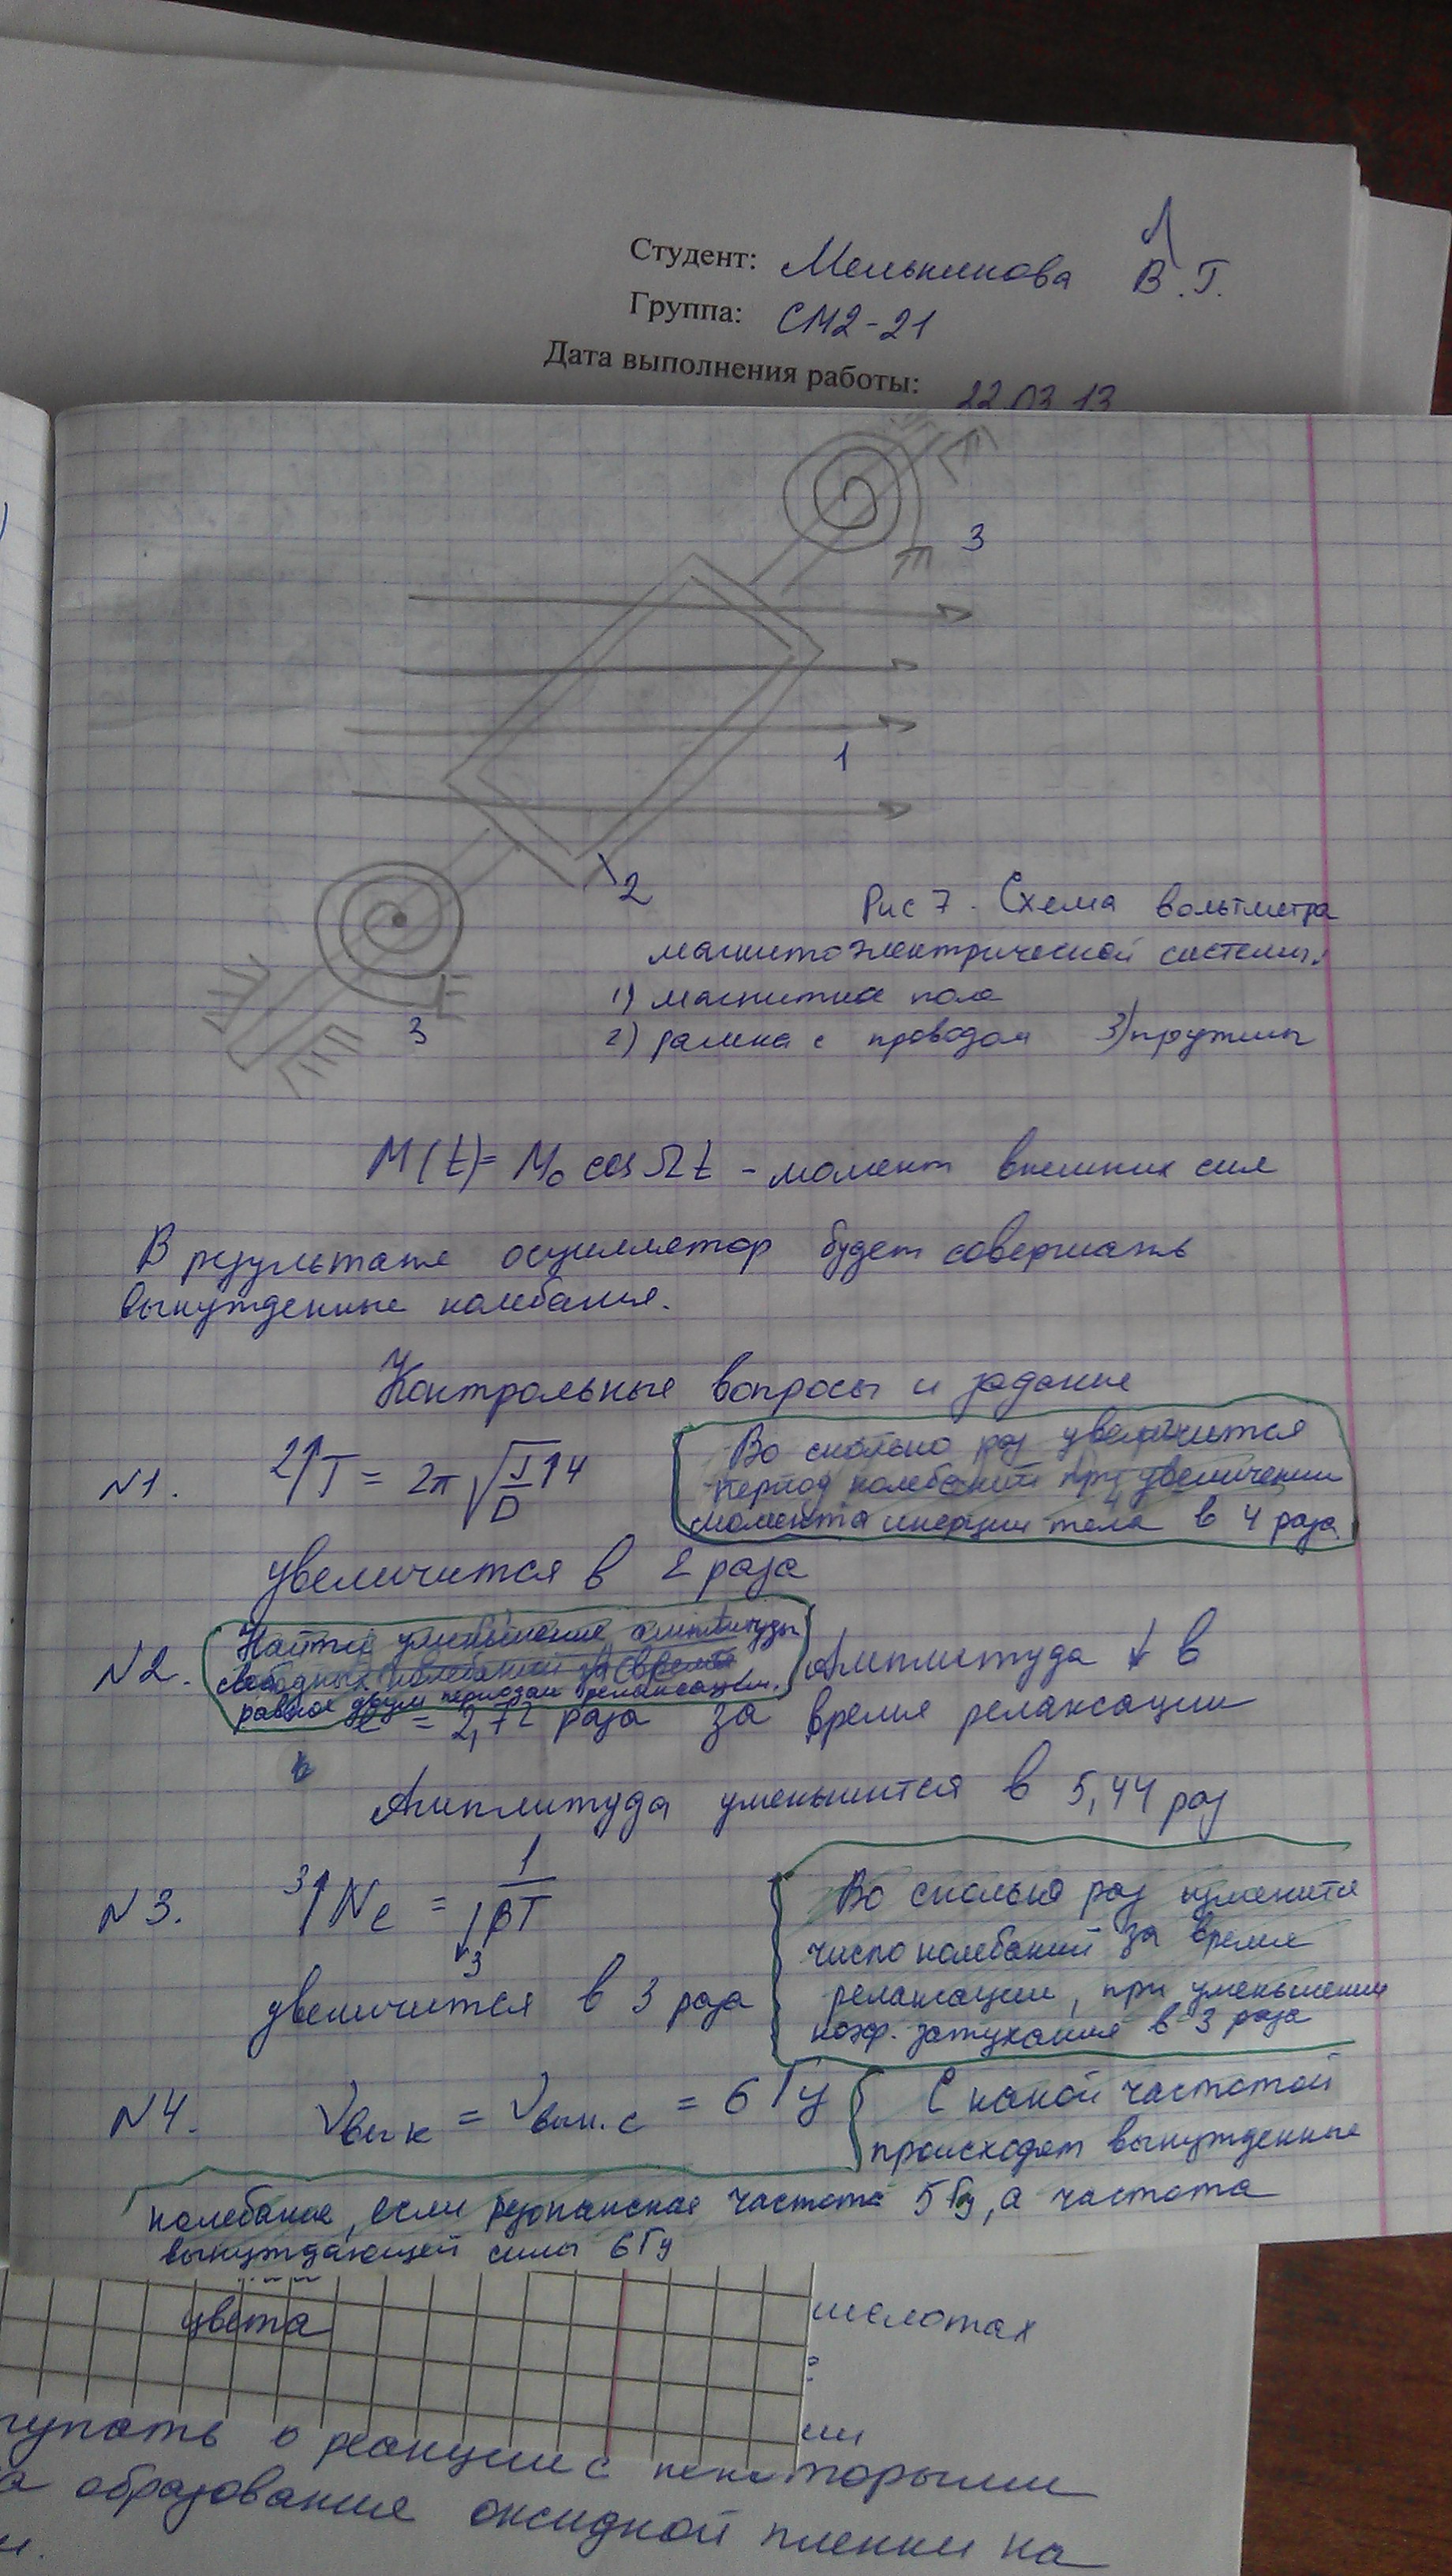 Студент: Мельникова В.Г.
Л
Группа: СМ2-21
Дата выполнения работы: 22.03.13
3
1
2
3
Рис 7. Схема вольтметра
магнитоэлектрической системы:
1) магнитное поле
2) рамка с проводом 3) пружины
M(t)= M₀ cos Ωt - момент внешних сил
В результате осциллятор будет совершать
вынужденные колебания.
Контрольные вопросы и задание
N1. 2↑T = 2π √(J/D) ↑4
Во сколько раз увеличится
период колебаний при увеличении
момента инерции тела в 4 раза
увеличится в 2 раза
N2. Найти уменьшение амплитуды
свободных колебаний за время
равное двум периодам релаксации.
Амплитуда ↓ в
e = 2,72 раза за время релаксации
Амплитуда уменьшится в 5,44 раз
N3. 3↑Ne = 1/↓βT
3
Во сколько раз изменится
число колебаний за время
релаксации, при уменьшении
коэф. затухания в 3 раза
увеличится в 3 раза
N4. ν вын к = ν вын. с = 6 Гц
С какой частотой
происходят вынужденные
колебания, если резонансная частота 5 Гц, а частота
вынуждающей силы 6 Гц
цвета
кислотах
ступать в реакции с некоторыми
образования оксидной пленки на